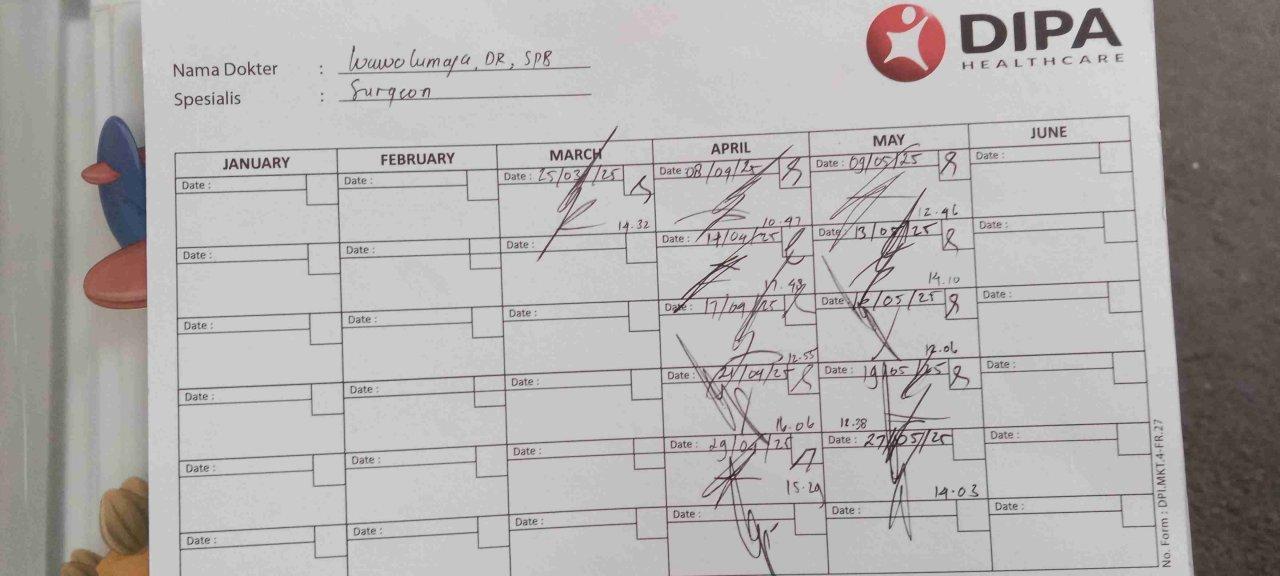 DIPA
HEALTHCARE
Nama Dokter : Wawolumaja, DR, SPB
Spesialis : Surgeon
JANUARY FEBRUARY MARCH APRIL MAY JUNE
Date : Date : Date : 25/03/25 Date : 08/04/25 Date : 09/05/25 Date :
14.32 10.47 12.46
Date : Date : Date : Date : 14/04/25 Date : 13/05/25 Date :
17.48 14.10
Date : Date : Date : Date : 17/04/25 Date : 16/05/25 Date :
12.55 12.06
Date : Date : Date : Date : 21/04/25 Date : 19/05/25 Date :
16.06 12.38
Date : Date : Date : Date : 29/04/25 Date : 27/05/25 Date :
15.29 14.03
Date : Date : Date : Date : Date : Date :
No. Form : DPI.MKT.4-FR.27